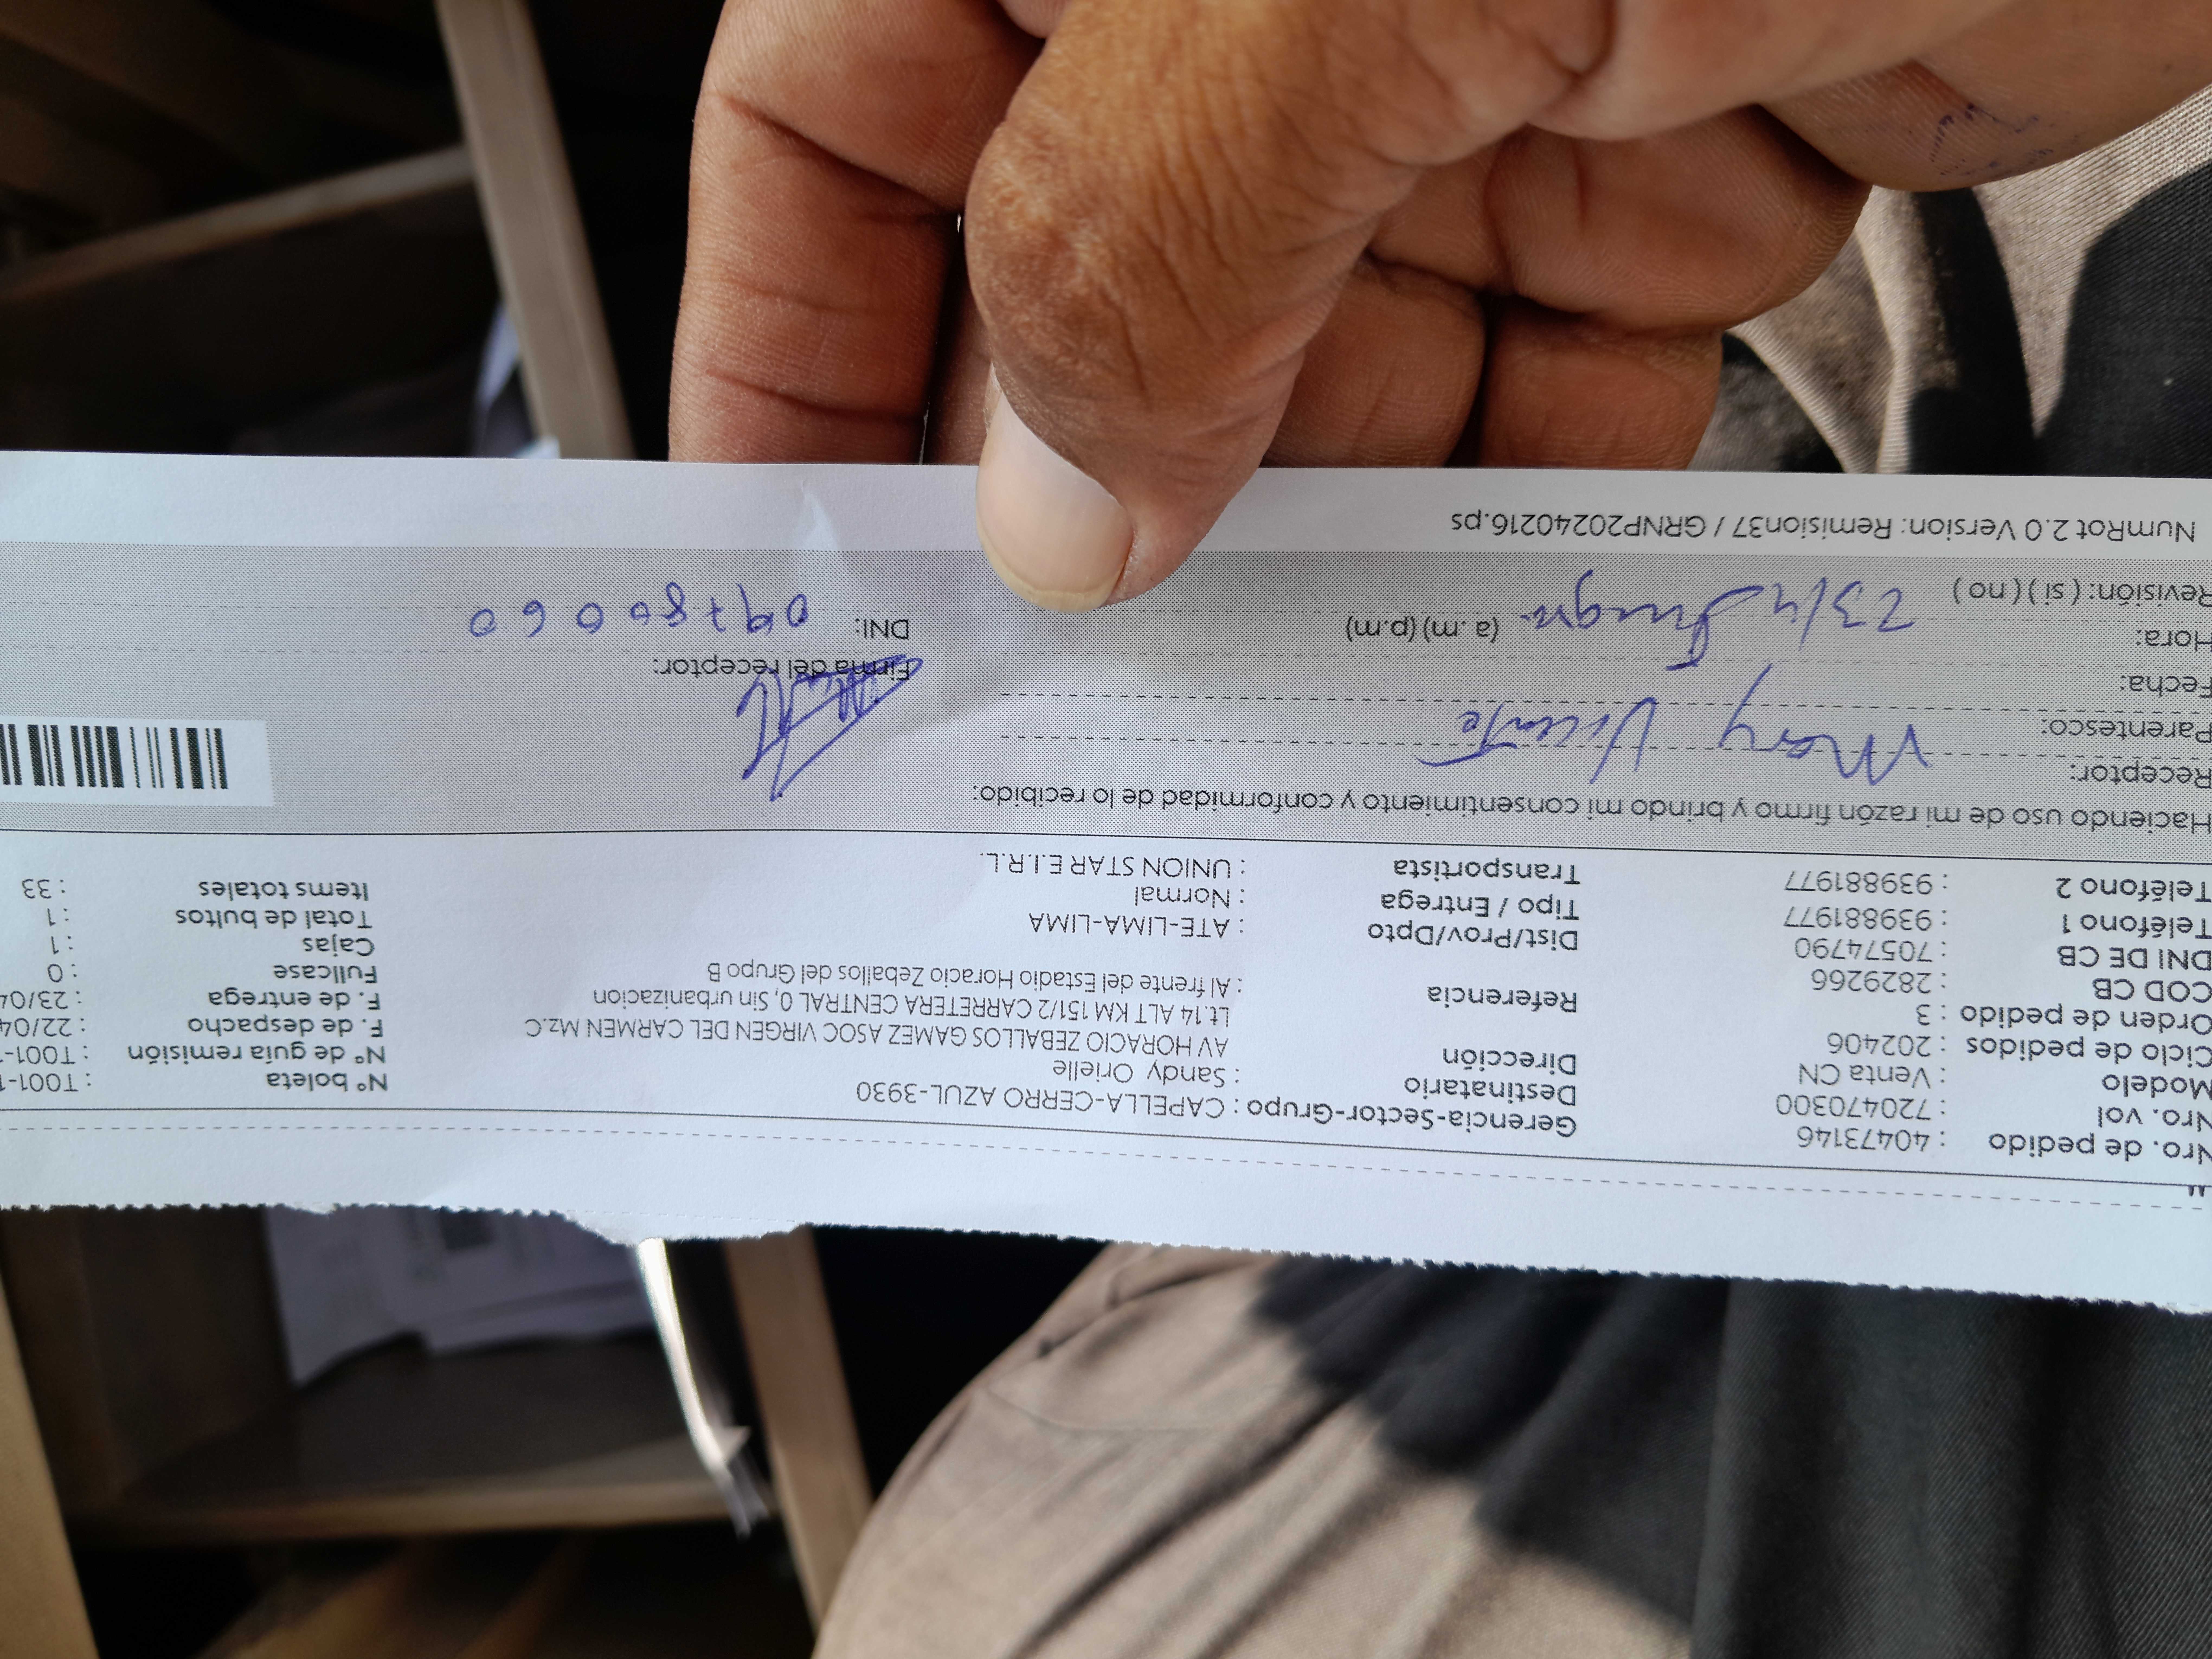 Nro. de pedido : 40473146
Nro. vol : 720470300
Modelo : Venta CN
Ciclo de pedidos : 202406
Orden de pedido : 3
COD CB : 2829266
DNI DE CB : 70574790
Teléfono 1 : 939881977
Teléfono 2 : 939881977
Gerencia-Sector-Grupo : CAPELLA-CERRO AZUL-3930
Destinatario : Sandy Orielle
Dirección AV HORACIO ZEBALLOS GAMEZ ASOC VIRGEN DEL CARMEN Mz.C
Lt.14 ALT KM 151/2 CARRETERA CENTRAL 0, Sin urbanizacion
Referencia : Al frente del Estadio Horacio Zeballos del Grupo B
Dist/Prov/Dpto : ATE-LIMA-LIMA
Tipo / Entrega : Normal
Transportista : UNION STAR E.I.R.L.
Nº boleta : T001-1
Nº de guía remisión : T001-
F. de despacho : 22/04
F. de entrega : 23/04
Fullcase : 0
Cajas : 1
Total de bultos : 1
Items totales : 33
Haciendo uso de mi razón firmo y brindo mi consentimiento y conformidad de lo recibido:
Receptor: Mary Vicente
Parentesco:
Fecha:
Hora: 23/4 (a.m) (p.m)
Revisión: ( si ) ( no )
Firma del receptor:
DNI: 09780060
NumRot 2.0 Version: Remision37 / GRNP20240216.ps